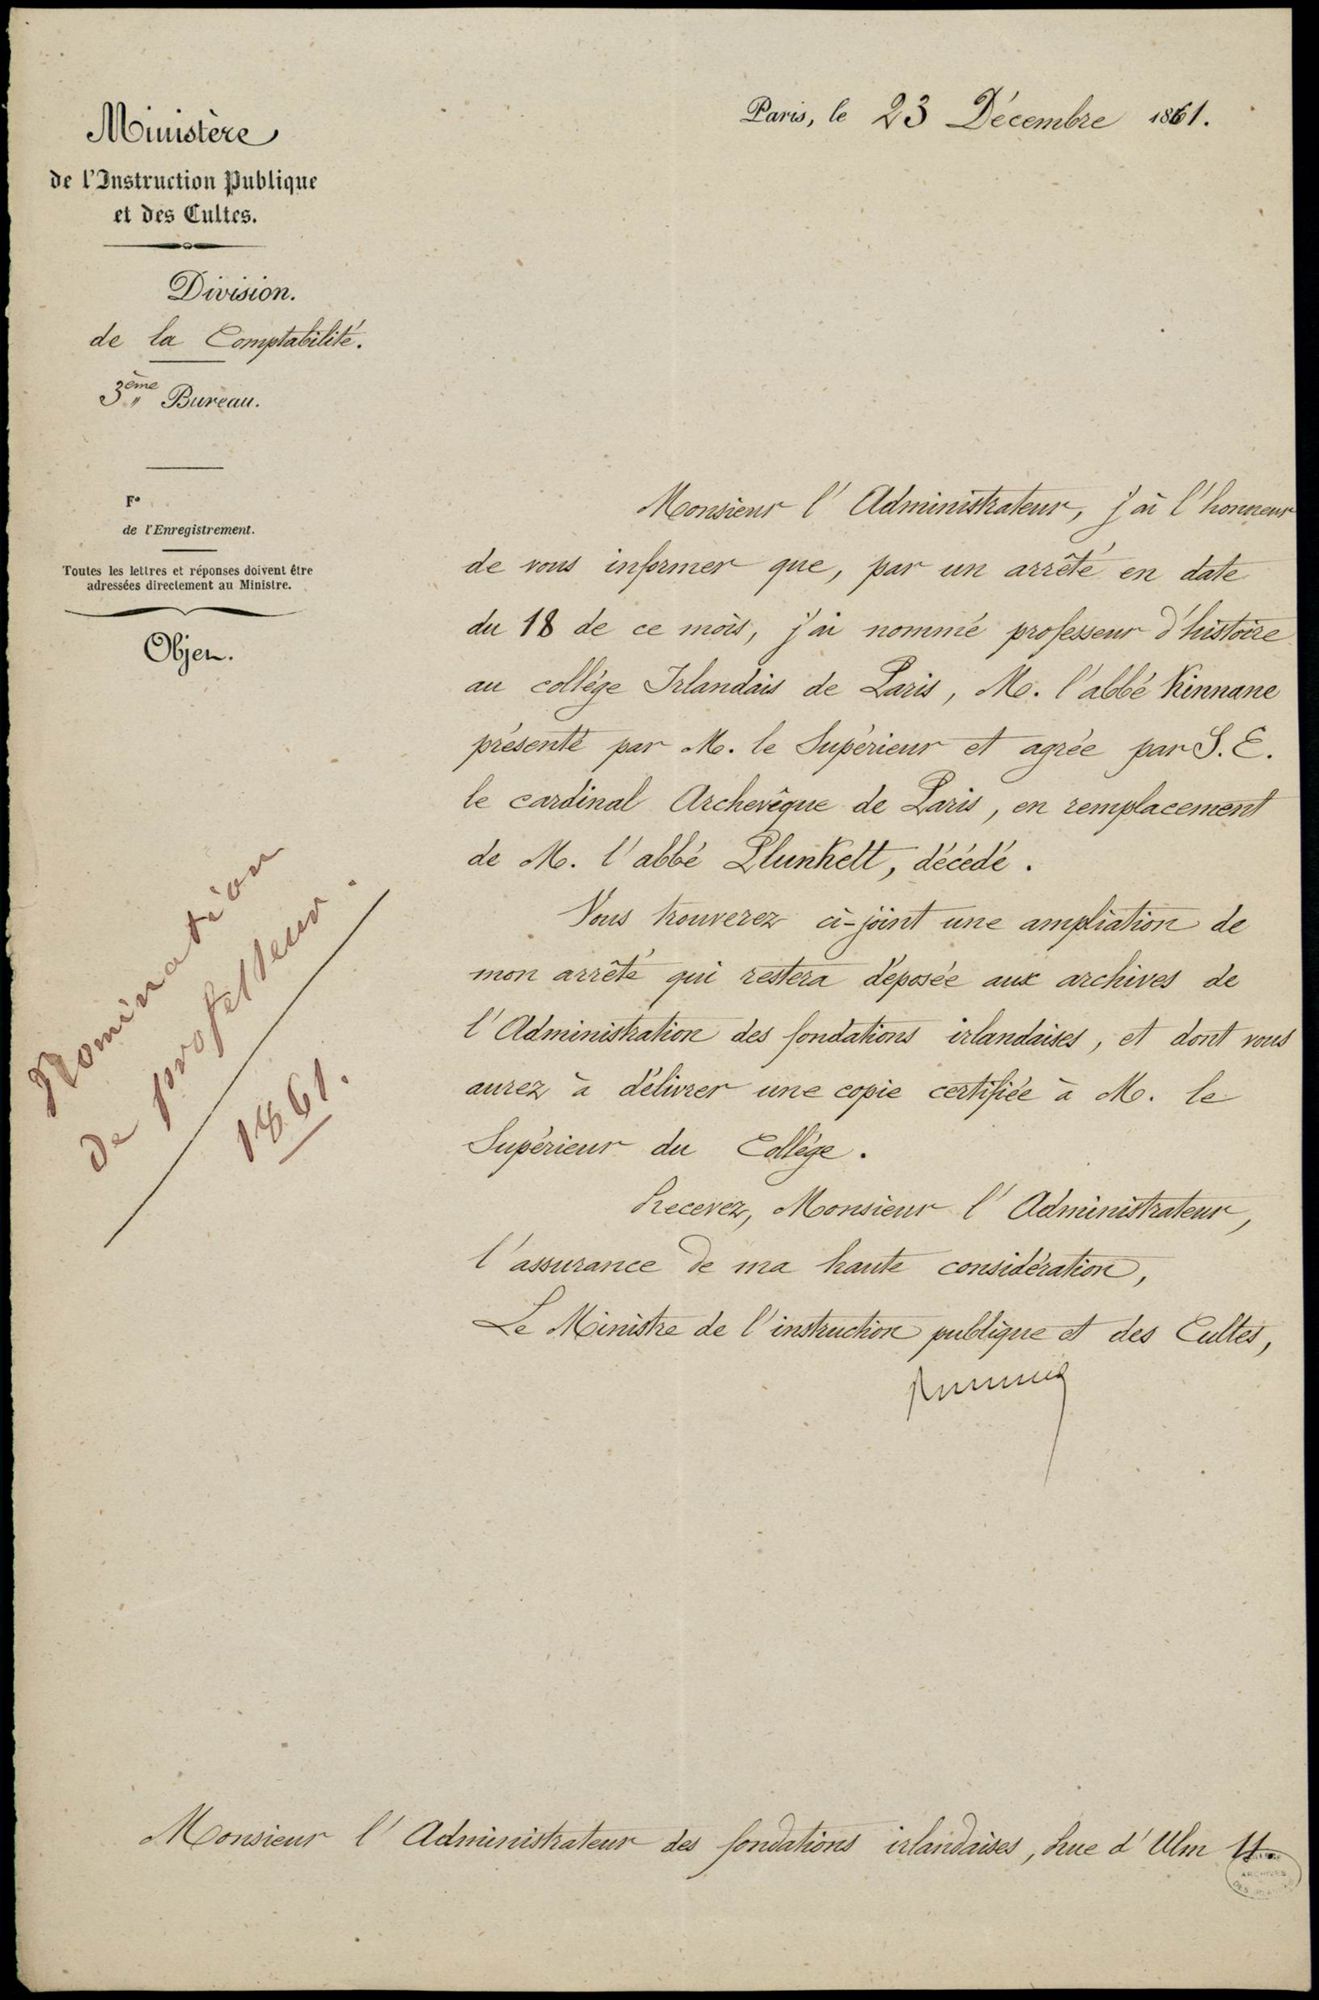 Ministère
de l'Instruction Publique
et des Cultes.
Division.
de la Comptabilité.
3ème Bureau.
F°
de l'Enregistrement.
Toutes les lettres et réponses doivent être
adressées directement au Ministre.
Objet.
Nomination
de professeur.
1861.
Paris, le 23 Décembre 1861.
Monsieur l'Administrateur, j'ai l'honneur
de vous informer que, par un arrêté en date
du 18 de ce mois, j'ai nommé professeur d'histoire
au collège Irlandais de Paris, M. l'abbé Kinnane
présenté par M. le Supérieur et agrée par S. E.
le cardinal Archevêque de Paris, en remplacement
de M. l'abbé Plunkett, décédé.
Vous trouverez ci-joint une ampliation de
mon arrêté qui restera déposée aux archives de
l'Administration des fondations irlandaises, et dont vous
aurez à délivrer une copie certifiée à M. le
Supérieur du Collège.
Recevez, Monsieur l'Administrateur,
l'assurance de ma haute considération,
Le Ministre de l'instruction publique et des Cultes,
Monsieur l'Administrateur des fondations irlandaises, Rue d'Ulm
ARCHIVES